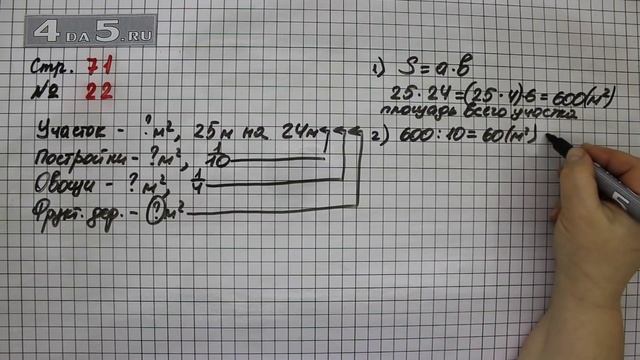 4 DA 5.RU
Стр. 71
№ 22
Участок - ? м², 25 м на 24 м
Постройки - ? м², 1/10
Овощи - ? м², 1/4
Фрукт. дер. - ? м²
1) S = a · b
25 · 24 = (25 · 4) · 6 = 600 (м²)
площадь всего участка
2) 600 : 10 = 60 (м²)